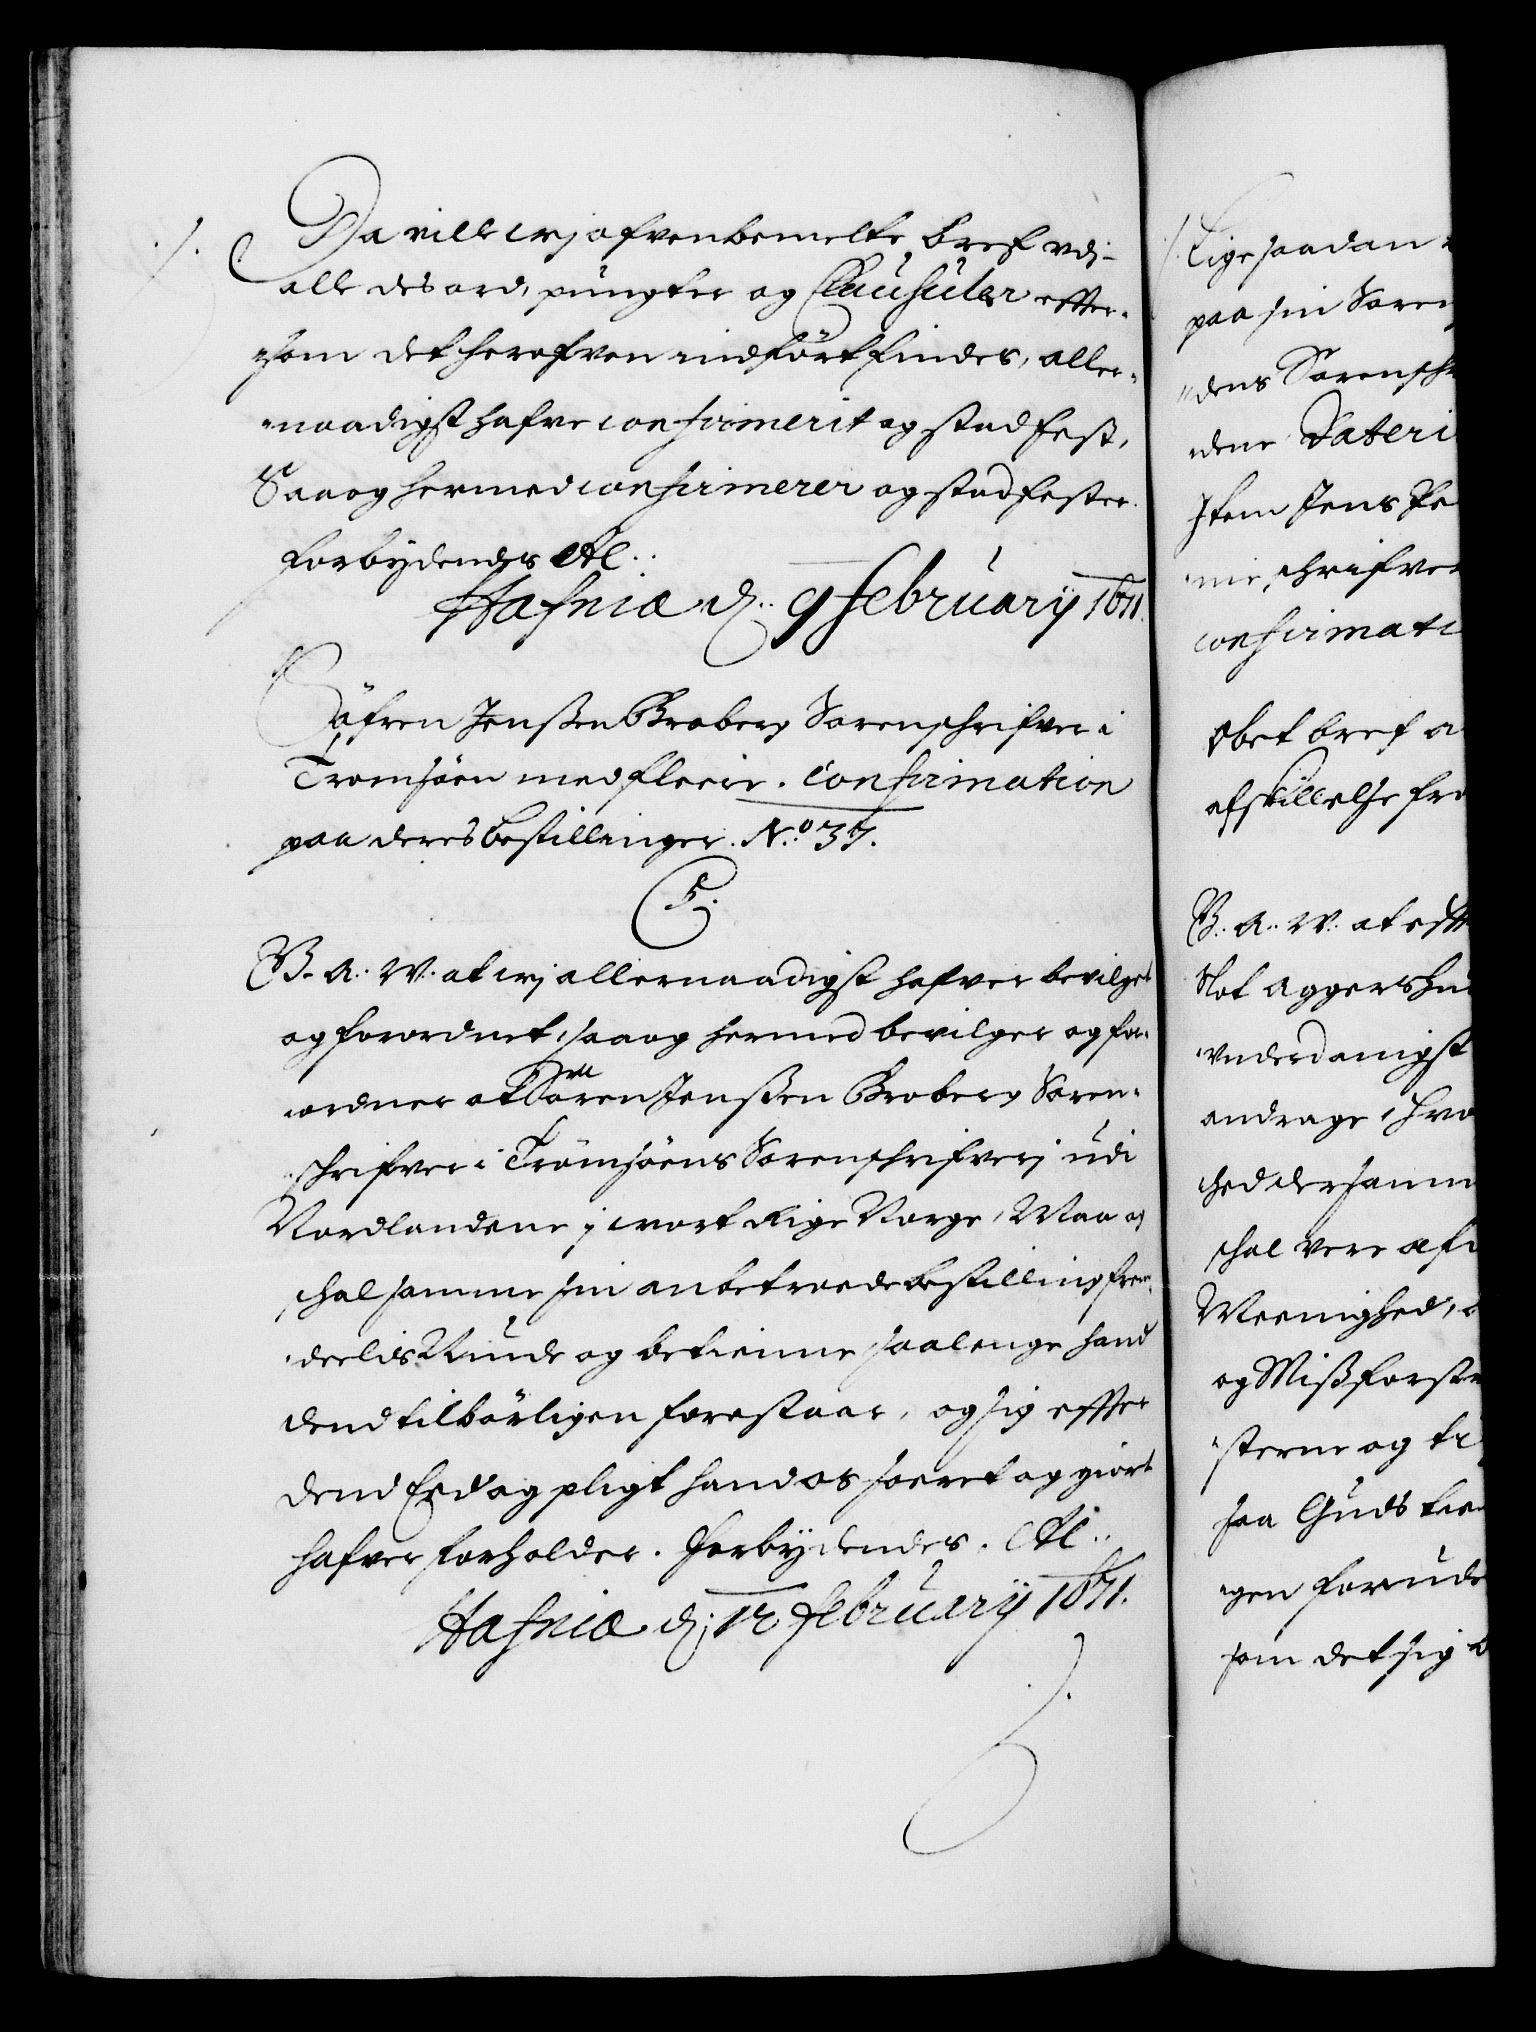 Da ville wj ofvenbemelte bref vdj
alle des ord, pungter og Clausuler effter¬
som det herofven indført findes, aller¬
naadigst hafve confirmerit og stadfest,
Saa og hermed confirmerer og stadfester.
forbydendes etc:
Hafniæ d. 9 februarij 1671.
Søfren Jenssen Broberg Sorenschrifver i
Tromsøen med fleere. Confirmation
paa deres bestillinger. No: 37.
C 5.
G. A. W. at wj allernaadigst hafver bevilget
og forordnet, saa og hermed bevilger og for¬
ordner at Søren Jenssen Broberg Soren¬
schrifver i Trømsøens Sorenschrifverj udi
Nordlandene j wort Rige Norge, Maa og
schal samme sin anbetroede bestilling frem¬
deelis Niude og betienne saalenge hand
dend tilbørligen forestaar, og sig effter
dend Eed og pligt hand os soeret og giort
hafver forholder. Forbydendes. Etc:
Hafniæ d; 12 februarij 1671.
Lige saadan
paa sin Soren
dens Sorensch
dene Dateri
Item Jens Pe
nie, schrifver
confirmati
Obet bref a
afskillelse fra
G. A. W. at efft
Slot Aggershu
vnderdanigst
andrage, hvo
hed dersamm
schal vere afs
Meenighed,
og Missforst
sterne og ti
saa Guds tien
gen forud
som det sig b